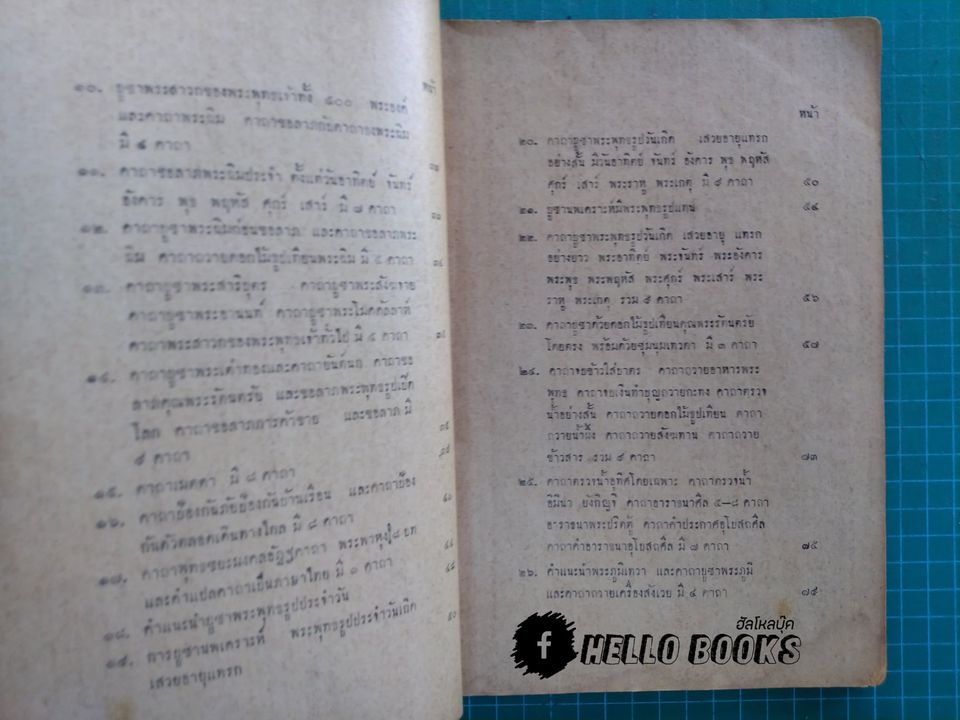 หน้า
๑๐. บูชาพระสาวกของพระพุทธเจ้าทั้ง ๕๐๐ พระองค์
และคาถาพระฉิม คาถาขอลาภกับคาถาของพระฉิม
มี ๔ คาถา
๑๑. คาถาขอลาภพระฉิมประจำ ตั้งแต่วันอาทิตย์ จันทร์
อังคาร พุธ พฤหัส ศุกร์ เสาร์ มี ๗ คาถา
๑๒. คาถาบูชาพระฉิมก่อนขอลาภ และคาถาขอลาภพระ
ฉิม คาถาถวายดอกไม้ธูปเทียนพระฉิม มี ๔ คาถา
๑๓. คาถาบูชาพระสารีบุตร คาถาบูชาพระสังกจาย
คาถาบูชาพระอานนท์ คาถาบูชาพระโมคคัลลาห์
คาถาพระสาวกของพระพุทธเจ้าทั่วไป มี ๕ คาถา
๑๔. คาถาบูชาพระเต้าทองและคาถายันต์นก คาถาขอ
ลาภคุณพระรัตนตรัย และขอลาภพระพุทธรูปเปิด
โลก คาถาขอลาภการค้าขาย และขอลาภ มี
๙ คาถา
๑๕. คาถาเมตตา มี ๘ คาถา
๑๖. คาถาป้องกันภัยป้องกันบ้านเรือน และคาถาป้อง
กันตัวตลอดเดินทางไกล มี ๘ คาถา
๑๗. คาถาพุทธชยะมงคลอัฏฐคาถา พระพาหุง ๘ บท
และคำแปลคาถาเป็นภาษาไทย มี ๑ คาถา
๑๘. คำแนะนำบูชาพระพุทธรูปประจำวัน
๑๙. การบูชานพเคราะห์ พระพุทธรูปประจำวันเกิด
เสวยอายุแทรก
หน้า
๒๐. คาถาบูชาพระพุทธรูปวันเกิด เสวยอายุแทรก
อย่างสั้น มีวันอาทิตย์ จันทร์ อังคาร พุธ พฤหัส
ศุกร์ เสาร์ พระราหู พระเกตุ มี ๙ คาถา ๕๐
๒๑. บูชานพเคราะห์มีพระพุทธรูปแทน ๕๔
๒๒. คาถาบูชาพระพุทธรูปวันเกิด เสวยอายุ แทรก
อย่างยาว พระอาทิตย์ พระจันทร์ พระอังคาร
พระพุธ พระพฤหัส พระศุกร์ พระเสาร์ พระ
ราหู พระเกตุ รวม ๙ คาถา ๕๖
๒๓. คาถาบูชาด้วยดอกไม้ธูปเทียนคุณพระรัตนตรัย
โดยตรง พร้อมด้วยชุมนุมเทวดา มี ๓ คาถา ๕๗
๒๔. คาถาจบข้าวใส่บาตร คาถาถวายอาหารพระ
พุทธ คาถาจบเงินทำบุญถวายกะทง คาถาตรวจ
น้ำอย่างสั้น คาถาถวายดอกไม้ธูปเทียน คาถา
ถวายน้ำผึ้ง คาถาถวายสังฆทาน คาถาถวาย
ข้าวสาร รวม ๙ คาถา ๗๓
๒๕. คาถาตรวจน้ำอุทิศโดยเฉพาะ คาถาตรวจน้ำ
อิมินา ยังกิญจิ คาถาอาราธนาศีล ๕–๘ คาถา
อาราธนาพระปริตต์ คาถาคำประกาศอุโบสถศีล
คาถาคำอาราธนาอุโบสถศีล มี ๗ คาถา ๗๕
๒๖. คำแนะนำพระภูมิเทวา และคาถาบูชาพระภูมิ
และคาถาถวายเครื่องสังเวย มี ๔ คาถา ๗๙
ฮัลโหลบุ๊ค
f HELLO BOOKS